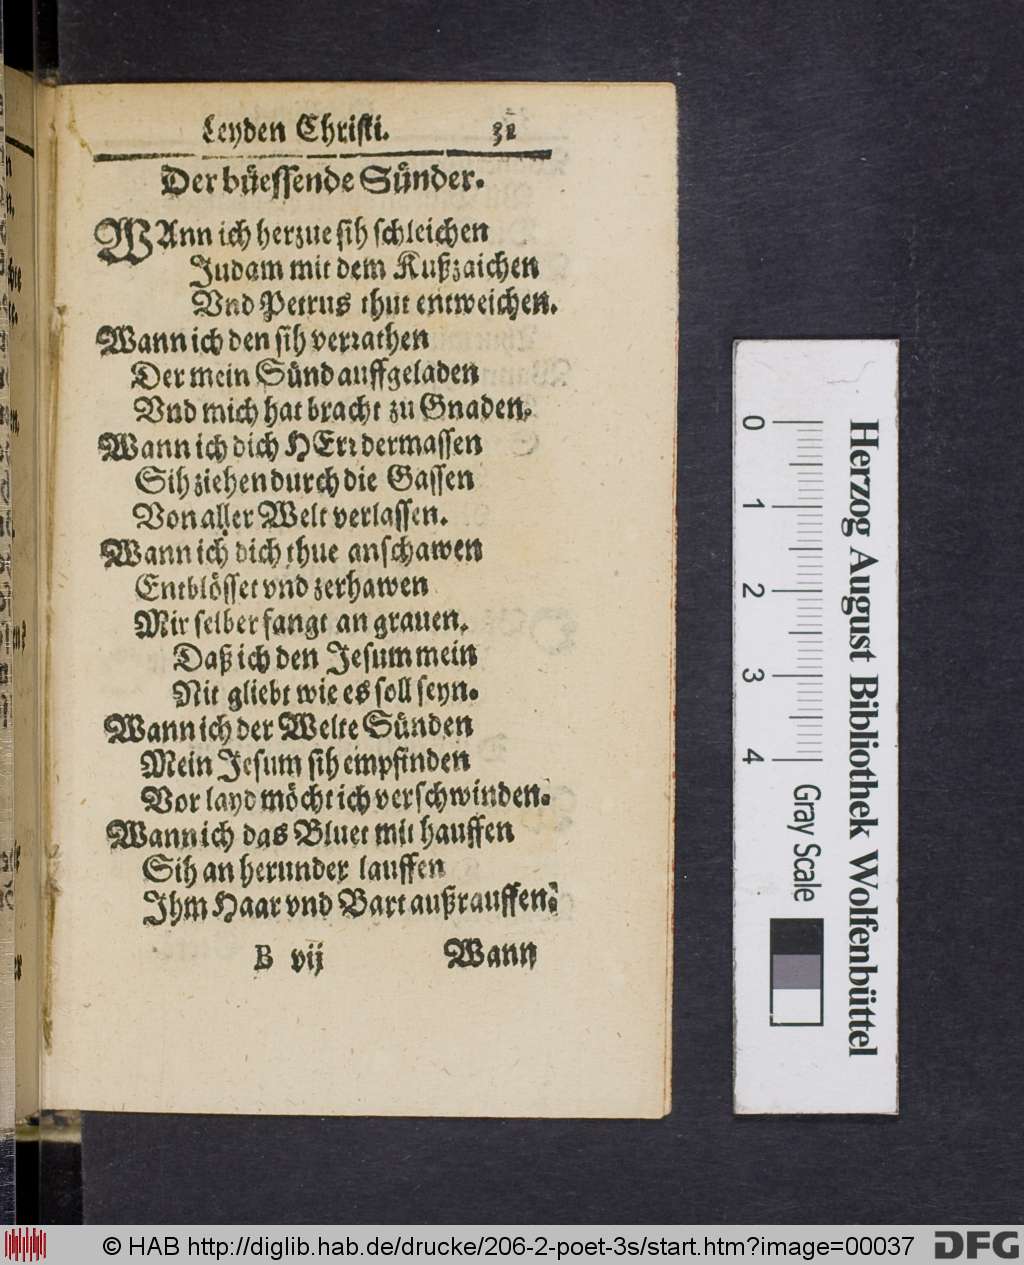 Leyden Christi. 31
Der büessende Sünder.
WAnn ich herzue sih schleichen
Judam mit dem Kußzaichen
Vnd Petrus thut entweichen.
Wann ich den sih verrathen
Der mein Sünd auffgeladen
Vnd mich hat bracht zu Gnaden.
Wann ich dich HErr dermassen
Sih ziehen durch die Gassen
Von aller Welt verlassen.
Wann ich dich thue anschawen
Entblösset vnd zerhawen
Mir selber fangt an grauen.
Daß ich den Jesum mein
Nit gliebt wie es soll seyn.
Wann ich der Welte Sünden
Mein Jesum sih empfinden
Vor layd möcht ich verschwinden.
Wann ich das Bluet mit hauffen
Sih an herunder lauffen
Ihm Haar vnd Bart außrauffen.
B vij Wann
Herzog August Bibliothek Wolfenbüttel
0 1 2 3 4 Gray Scale
© HAB http://diglib.hab.de/drucke/206-2-poet-3s/start.htm?image=00037
DFG